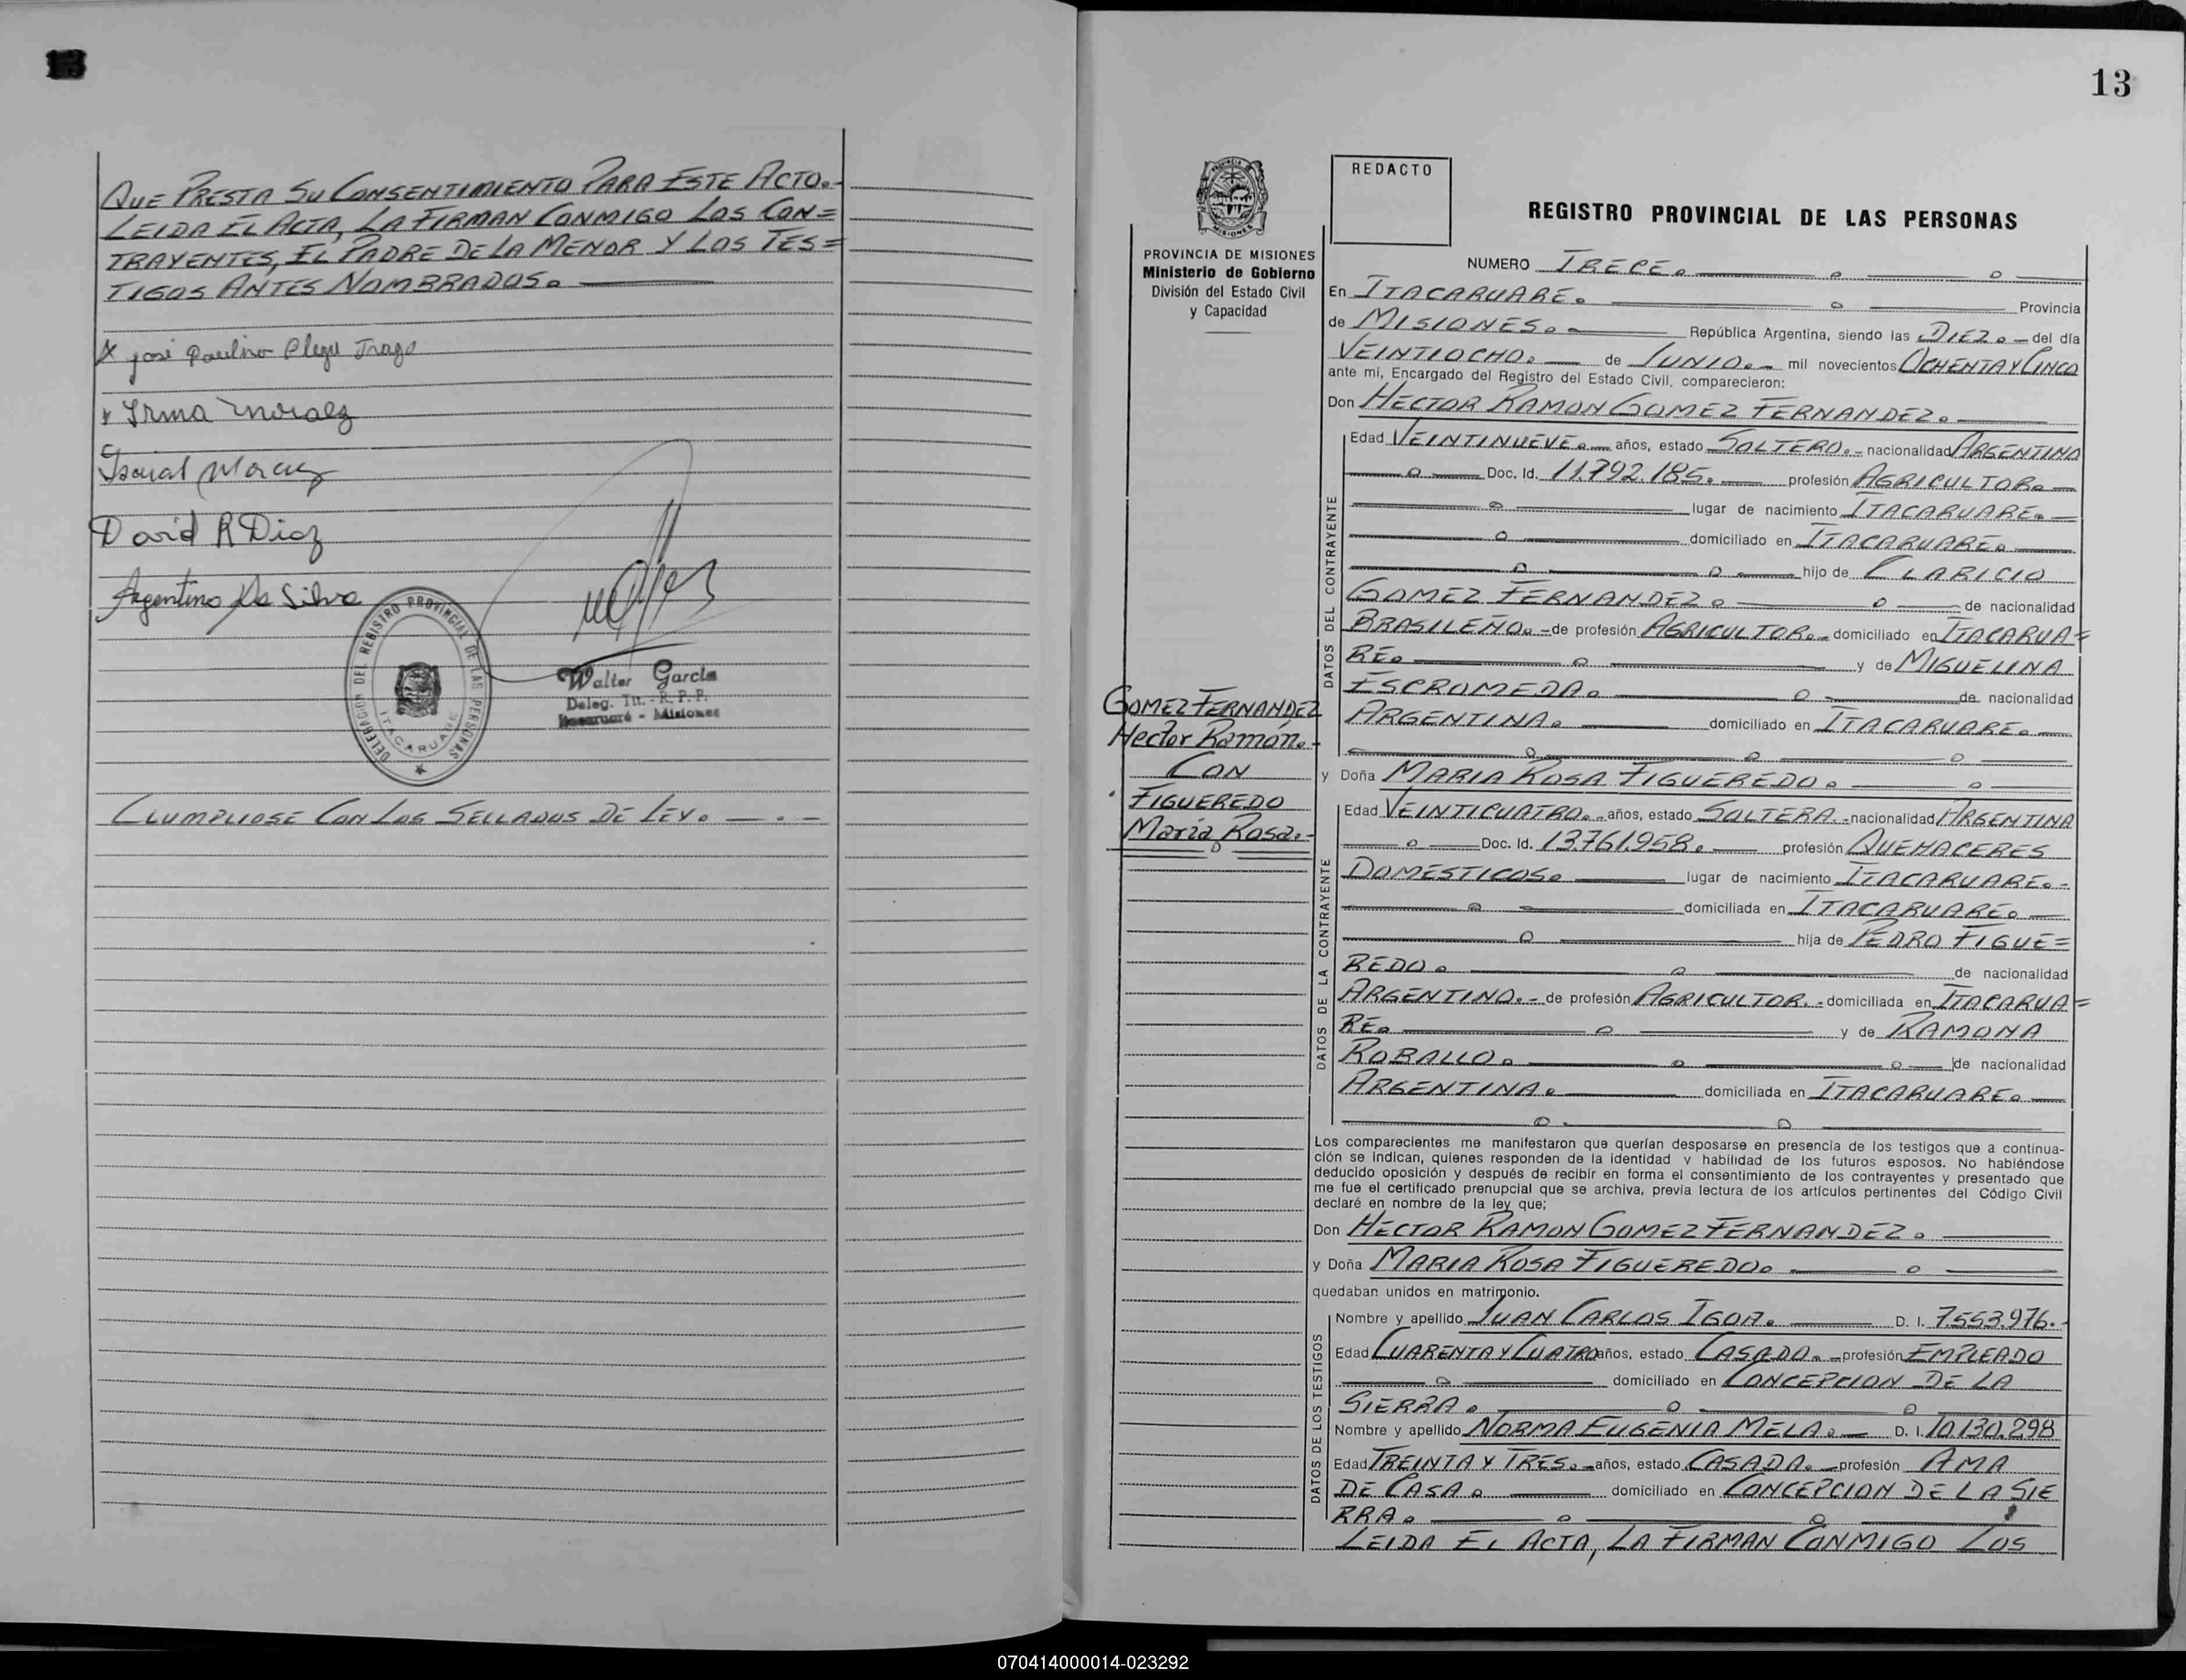 QUE PRESTA SU CONSENTIMIENTO PARA ESTE ACTO.-
LEIDA EL ACTA, LA FIRMAN CONMIGO LOS CON=
TRAYENTES, EL PADRE DE LA MENOR Y LOS TES=
TIGOS ANTES NOMBRADOS.
José Paulino
Irma
David R Diaz
Argentino Da Silva
DELEGACION DEL REGISTRO PROVINCIAL DE LAS PERSONAS
ITACARUARE
Walter García
Deleg. Tit. - R. P. P.
Itacaruaré - Misiones
CLUMPLIOSE CON LOS SELLADOS DE LEY.
13
PROVINCIA DE MISIONES
Ministerio de Gobierno
División del Estado Civil
y Capacidad
REDACTO
REGISTRO PROVINCIAL DE LAS PERSONAS
NUMERO TRECE.
En ITACARUARE. Provincia
de MISIONES. República Argentina, siendo las DIEZ. del día
VEINTIOCHO. de JUNIO. mil novecientos OCHENTA Y CINCO
ante mí, Encargado del Registro del Estado Civil, comparecieron:
Don HECTOR RAMON GOMEZ FERNANDEZ.
DATOS DEL CONTRAYENTE
Edad VEINTINUEVE. años, estado SOLTERO. nacionalidad ARGENTINA
Doc. Id. 11.792.185. profesión AGRICULTOR.
lugar de nacimiento ITACARUARE.
domiciliado en ITACARUARE.
hijo de CLARICIO
GOMEZ FERNANDEZ. de nacionalidad
BRASILEÑO. de profesión AGRICULTOR. domiciliado en ITACARUA=
RE. y de MIGUELINA
ESCROMEDA. de nacionalidad
ARGENTINA. domiciliado en ITACARUARE.
GOMEZ FERNANDEZ
Hector Ramon.-
CON
FIGUEREDO
María Rosa.-
y Doña MARIA ROSA FIGUEREDO.
DATOS DE LA CONTRAYENTE
Edad VEINTICUATRO. años, estado SOLTERA. nacionalidad ARGENTINA
Doc. Id. 13.761.958. profesión QUEHACERES
DOMESTICOS. lugar de nacimiento ITACARUARE.-
domiciliada en ITACARUARE.
hija de PEDRO FIGUE=
REDO. de nacionalidad
ARGENTINO. de profesión AGRICULTOR. domiciliada en ITACARUA=
RE. y de RAMONA
ROBALLO. de nacionalidad
ARGENTINA. domiciliada en ITACARUARE.
Los comparecientes me manifestaron que querían desposarse en presencia de los testigos que a continua-
ción se indican, quienes responden de la identidad y habilidad de los futuros esposos. No habiéndose
deducido oposición y después de recibir en forma el consentimiento de los contrayentes y presentado que
me fue el certificado prenupcial que se archiva, previa lectura de los artículos pertinentes del Código Civil
declaré en nombre de la ley que;
Don HECTOR RAMON GOMEZ FERNANDEZ.
y Doña MARIA ROSA FIGUEREDO.
quedaban unidos en matrimonio.
DATOS DE LOS TESTIGOS
Nombre y apellido JUAN CARLOS IGOA. D. I. 7.553.976.-
Edad CUARENTA Y CUATRO años, estado CASADO. profesión EMPLEADO
domiciliado en CONCEPCION DE LA
SIERRA.
Nombre y apellido NORMA EUGENIA MELA. D. I. 10.130.298
Edad TREINTA Y TRES. años, estado CASADA. profesión AMA
DE CASA. domiciliado en CONCEPCION DE LA SIE
RRA.
LEIDA EL ACTA, LA FIRMAN CONMIGO LOS
070414000014-023292